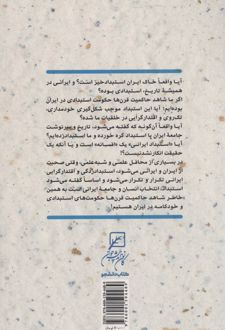 آیا واقعاً خاک ایران استبدادخیز است؟ و ایرانی در
همیشهٔ تاریخ، استبدادی بوده؟
اگر ما شاهد حاکمیت قرن‌ها حکومت استبدادی در ایران
بوده‌ایم؛ آیا این استبداد موجب شکل‌گیری خودمداری،
تکروی و اقتدارگرایی در خلقیات ما شده؟
آیا واقعاً آن‌گونه که گفته می‌شود، تاریخ و سرنوشت
جامعهٔ ایران با استبداد گره خورده و ما استبدادزده‌ایم؟
آیا «استبداد ایرانی» یک «افسانه» است و یا آنکه یک
حقیقت انکارنشدنیست؟!
در بسیاری از محافل علمی و شبه‌علمی، وقتی صحبت
از ایران و ایرانی می‌شود، استبدادزدگی و اقتدارگرایی
ایرانی تکرار و تکرار می‌شود و اساساً گفته می‌شود
استبداد، انتخاب انسان و جامعهٔ ایرانی است به همین
خاطر شاهد حاکمیت قرن‌ها حکومت‌های استبدادی
و خودکامه در ایران هستیم!
کتاب دانشجو